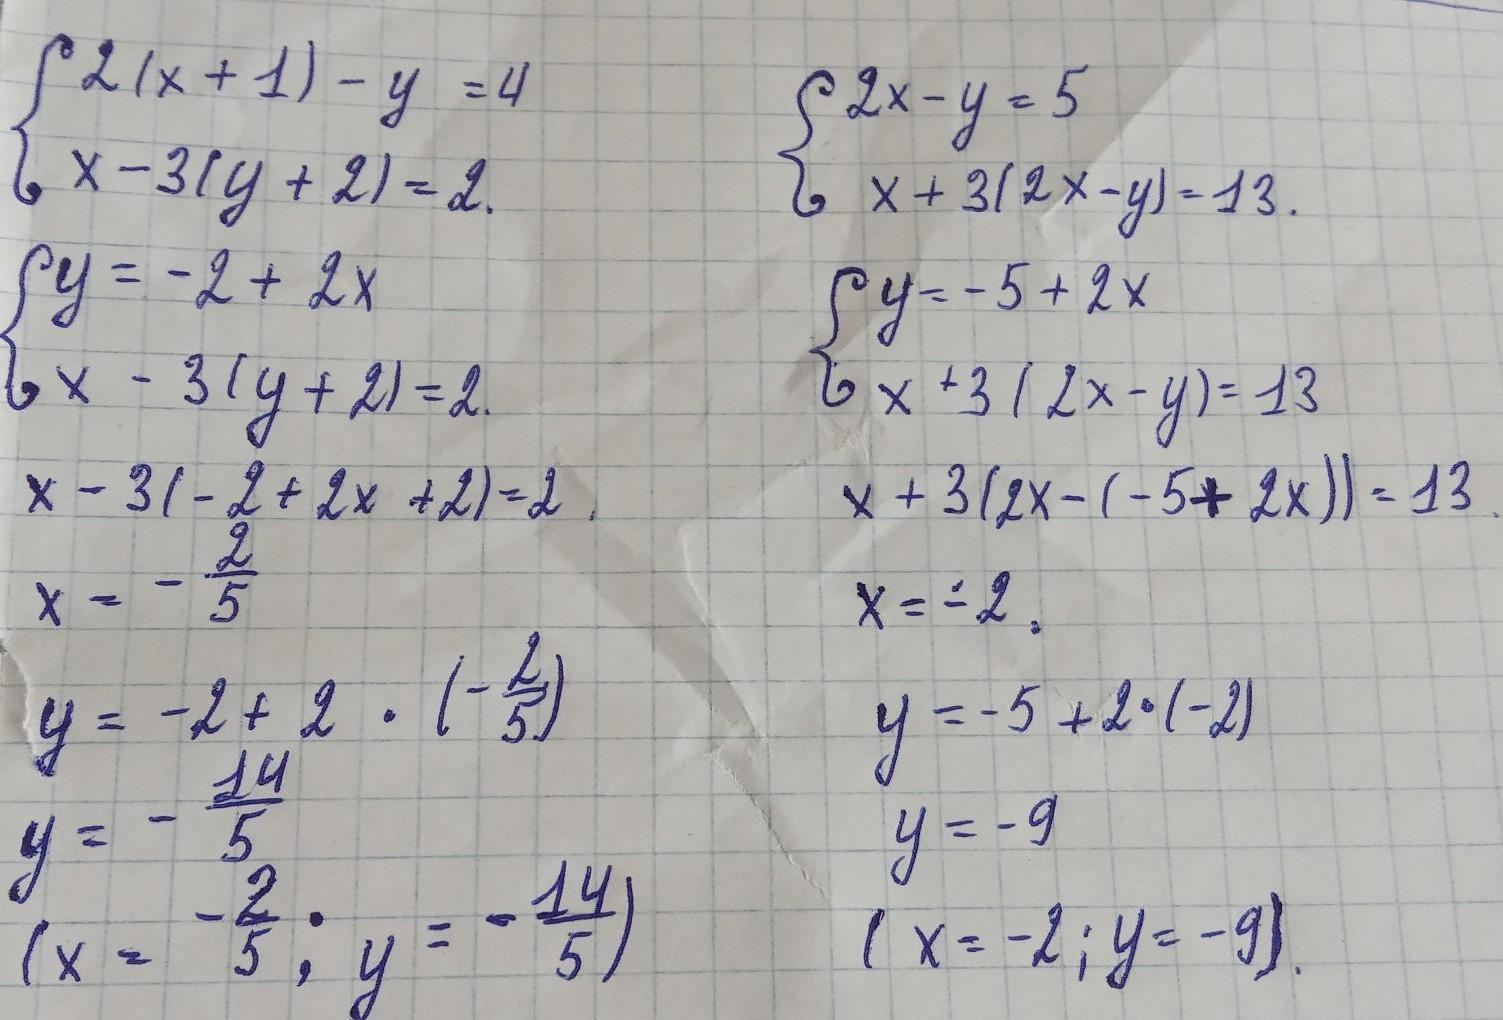 2(x + 1) - y = 4
x - 3(y + 2) = 2.
y = -2 + 2x
x - 3(y + 2) = 2.
x - 3(-2 + 2x + 2) = 2.
x = -2/5
y = -2 + 2 · (-2/5)
y = -14/5
(x = -2/5; y = -14/5)
2x - y = 5
x + 3(2x - y) = 13.
y = -5 + 2x
x + 3(2x - y) = 13
x + 3(2x - (-5 + 2x)) = 13.
x = -2.
y = -5 + 2·(-2)
y = -9
(x = -2; y = -9).